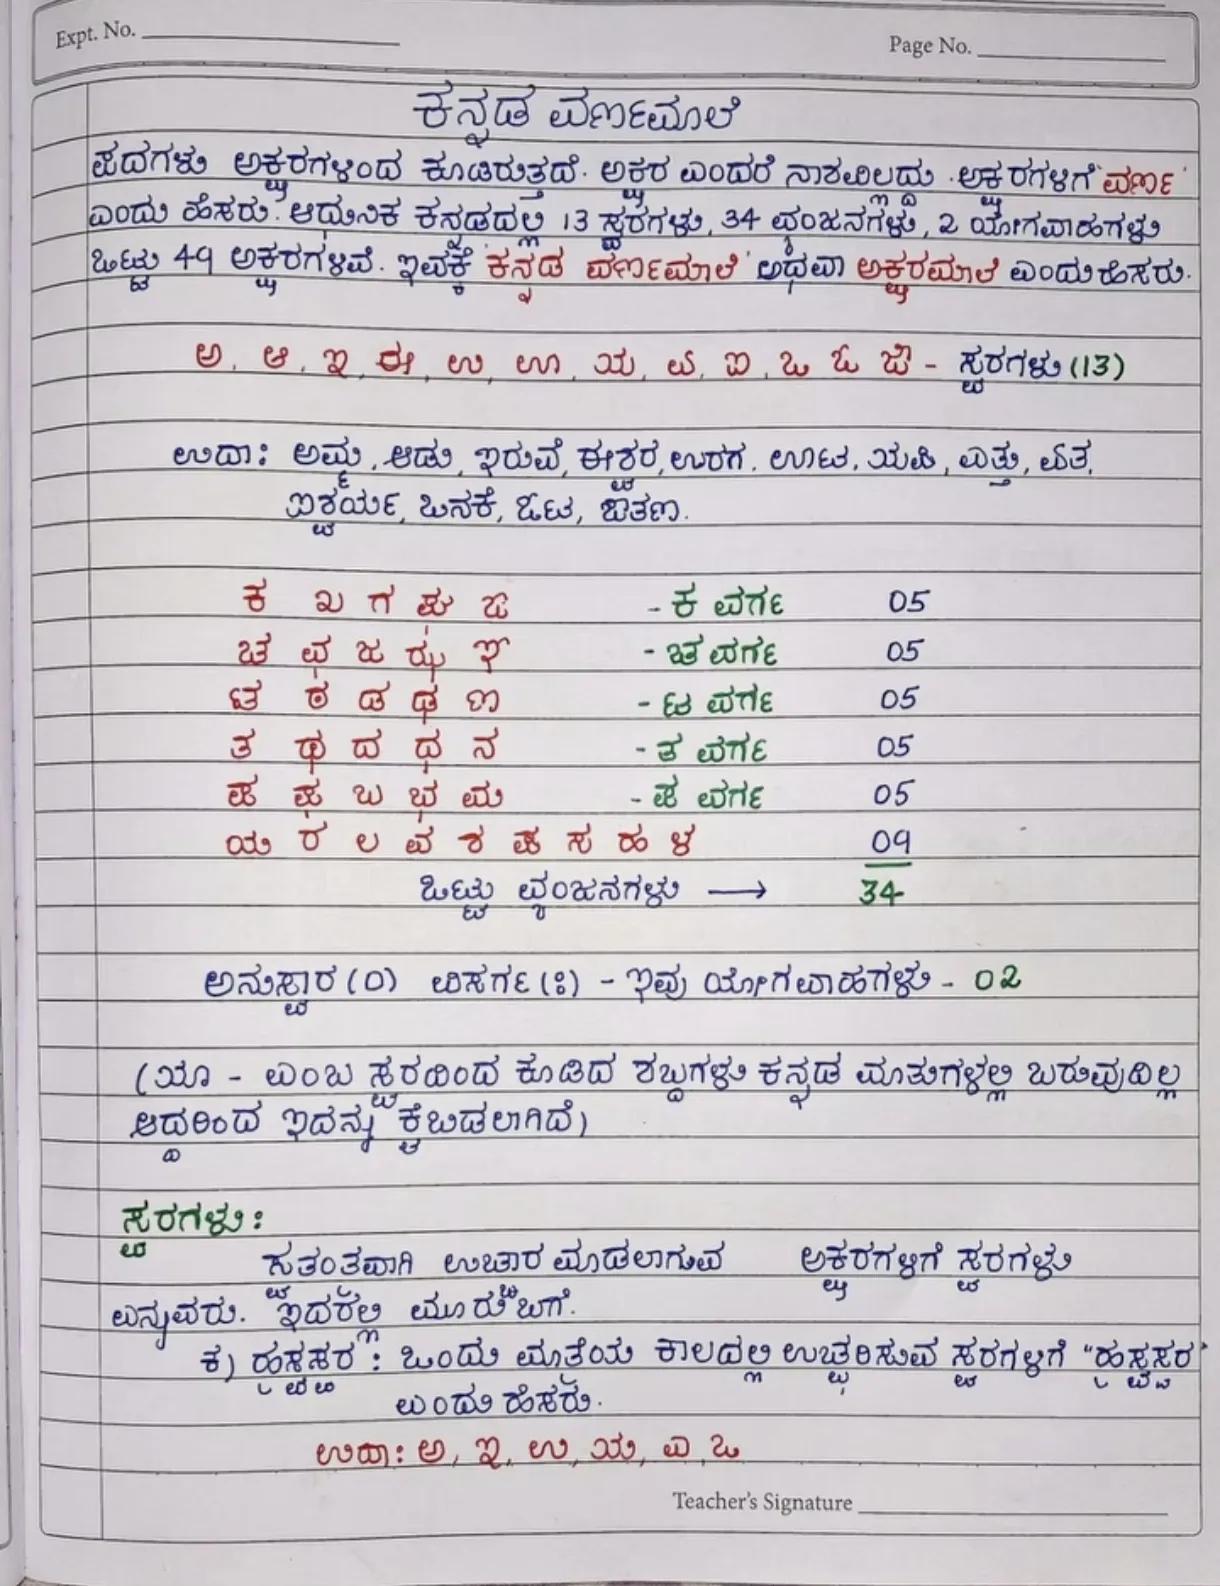 Expt. No.
Page No.
ಕನ್ನಡ ವರ್ಣಮಾಲೆ
ಪದಗಳು ಅಕ್ಷರಗಳಿಂದ ಕೂಡಿರುತ್ತದೆ. ಅಕ್ಷರ ಎಂದರೆ ನಾಶವಿಲ್ಲದ್ದು. ಅಕ್ಷರಗಳಿಗೆ 'ವರ್ಣ'
ಎಂದು ಹೆಸರು. ಆಧುನಿಕ ಕನ್ನಡದಲ್ಲಿ 13 ಸ್ವರಗಳು, 34 ವ್ಯಂಜನಗಳು, 2 ಯೋಗವಾಹಗಳು
ಒಟ್ಟು 49 ಅಕ್ಷರಗಳಿವೆ. ಇವಕ್ಕೆ 'ಕನ್ನಡ ವರ್ಣಮಾಲೆ' ಅಥವಾ ಅಕ್ಷರಮಾಲೆ ಎಂದು ಹೆಸರು.
ಅ, ಆ, ಇ, ಈ, ಉ, ಊ, ಋ, ಎ, ಏ, ಐ, ಒ ಓ ಔ - ಸ್ವರಗಳು (13)
ಉದಾ: ಅಮ್ಮ, ಆಡು, ಇರುವೆ, ಈಶ್ವರ, ಉರಗ, ಊಟ, ಋಷಿ, ಎತ್ತು, ಏತ,
ಐಶ್ವರ್ಯ, ಒನಕೆ, ಓಟ, ಔತಣ.
ಕ ಖ ಗ ಘ ಙ - ಕ ವರ್ಗ 05
ಚ ಛ ಜ ಝ ಞ - ಚ ವರ್ಗ 05
ಟ ಠ ಡ ಢ ಣ - ಟ ವರ್ಗ 05
ತ ಥ ದ ಧ ನ - ತ ವರ್ಗ 05
ಪ ಫ ಬ ಭ ಮ - ಪ ವರ್ಗ 05
ಯ ರ ಲ ವ ಶ ಷ ಸ ಹ ಳ 09
ಒಟ್ಟು ವ್ಯಂಜನಗಳು → 34
ಅನುಸ್ವಾರ (ಂ) ವಿಸರ್ಗ (ಃ) - ಇವು ಯೋಗವಾಹಗಳು - 02
(ೠ - ಎಂಬ ಸ್ವರದಿಂದ ಕೂಡಿದ ಶಬ್ದಗಳು ಕನ್ನಡ ಮಾತುಗಳಲ್ಲಿ ಬರುವುದಿಲ್ಲ
ಆದ್ದರಿಂದ ಇದನ್ನು ಕೈಬಿಡಲಾಗಿದೆ)
ಸ್ವರಗಳು:
ಸ್ವತಂತ್ರವಾಗಿ ಉಚ್ಚಾರ ಮಾಡಲಾಗುವ ಅಕ್ಷರಗಳಿಗೆ ಸ್ವರಗಳು
ಎನ್ನುವರು. ಇದರಲ್ಲಿ ಮೂರು ಬಗೆ.
ಕ) ಹೃಸ್ವಸ್ವರ: ಒಂದು ಮಾತ್ರೆಯ ಕಾಲದಲ್ಲಿ ಉಚ್ಛರಿಸುವ ಸ್ವರಗಳಿಗೆ "ಹೃಸ್ವಸ್ವರ"
ಎಂದು ಹೆಸರು.
ಉದಾ: ಅ, ಇ, ಉ, ಋ, ಎ, ಒ
Teacher's Signature